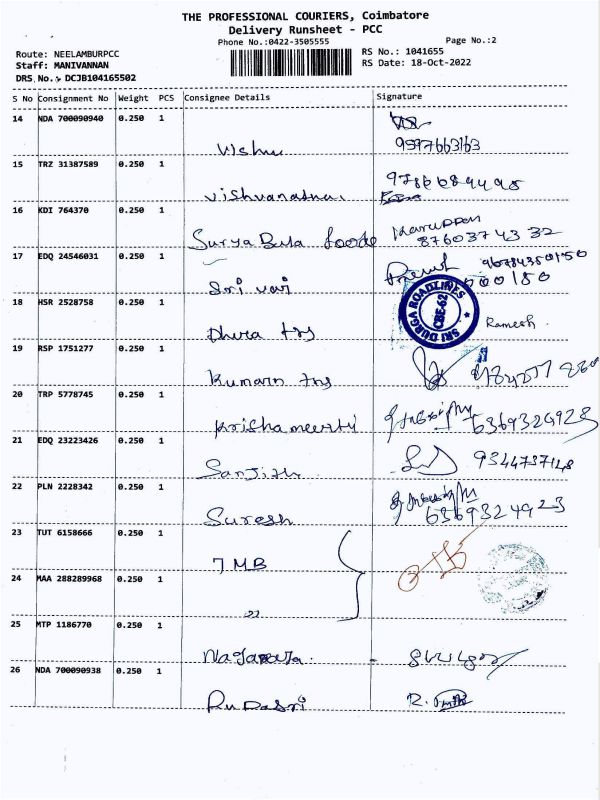 THE PROFESSIONAL COURIERS, Coimbatore
Delivery Runsheet - PCC
Phone No.:0422-3505555 Page No.:2
Route: NEELAMBURPCC RS No.: 1041655
Staff: MANIVANNAN RS Date: 18-Oct-2022
DRS No.: DCJB104165502
S No Consignment No Weight PCS Consignee Details Signature
14 NDA 700090940 0.250 1
Vishnu 9597663163
15 TRZ 31387589 0.250 1
Vishvanathan
16 KDI 764370 0.250 1
Surya Bala foode 8760374332
17 EDQ 24546031 0.250 1
Sri vari
18 HSR 2528758 0.250 1
SRI DURGA ROADLINES
CBE-62
Dhura trs Ramesh.
19 RSP 1751277 0.250 1
Kumarn trs
20 TRP 5778745 0.250 1
Krishameerti 6369324923
21 EDQ 23223426 0.250 1
Sanjith 9344737148
22 PLN 2228342 0.250 1
Suresh 6369324923
23 TUT 6158666 0.250 1
TMB
24 MAA 288289968 0.250 1
25 MTP 1186770 0.250 1
26 NDA 700090938 0.250 1
Rupasri